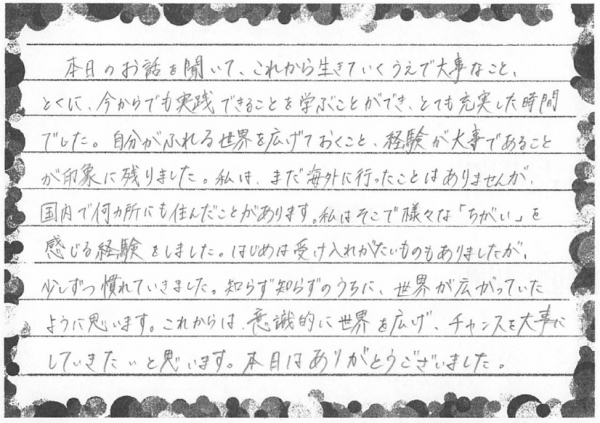 本日のお話を聞いて、これから生きていくうえで大事なこと、
とくに、今からでも実践できることを学ぶことができ、とても充実した時間
でした。自分がふれる世界を広げておくこと、経験が大事であること
が印象に残りました。私は、まだ海外に行ったことはありませんが、
国内で何カ所にも住んだことがあります。私はそこで様々な「ちがい」を
感じる経験をしました。はじめは受け入れがたいものもありましたが、
少しずつ慣れていきました。知らず知らずのうちに、世界が広がっていた
ように思います。これからは、意識的に世界を広げ、チャンスを大事に
していきたいと思います。本日はありがとうございました。